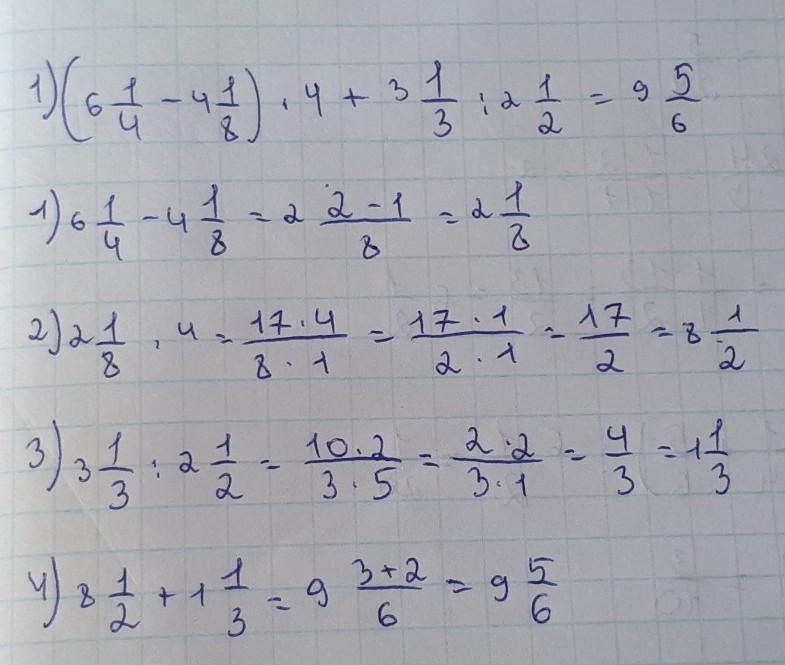 1) (6 1/4 - 4 1/8) · 4 + 3 1/3 : 2 1/2 = 9 5/6
1) 6 1/4 - 4 1/8 = 2 (2-1)/8 = 2 1/8
2) 2 1/8 · 4 = (17·4)/(8·1) = (17·1)/(2·1) = 17/2 = 8 1/2
3) 3 1/3 : 2 1/2 = (10·2)/(3·5) = (2·2)/(3·1) = 4/3 = 1 1/3
4) 8 1/2 + 1 1/3 = 9 (3+2)/6 = 9 5/6